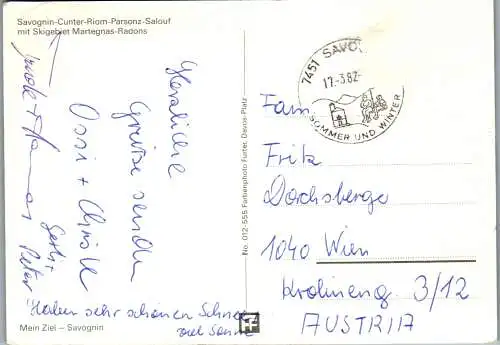 Savognin-Cunter-Riom-Parsonz-Salouf
mit Skigebiet Martegnas-Radons
Herzliche
Grüsse senden
Ossi + Christl
Gerli +
Peter
Haben sehr schönen Schnee
viel Sonne
Mein Ziel – Savognin
No. 012-555 Farbenphoto Furter, Davos-Platz
7451 SAVO
17.-3.82-
SOMMER UND WINTER
Fam.
Fritz
Dachsberger
1040 Wien
3/12
AUSTRIA